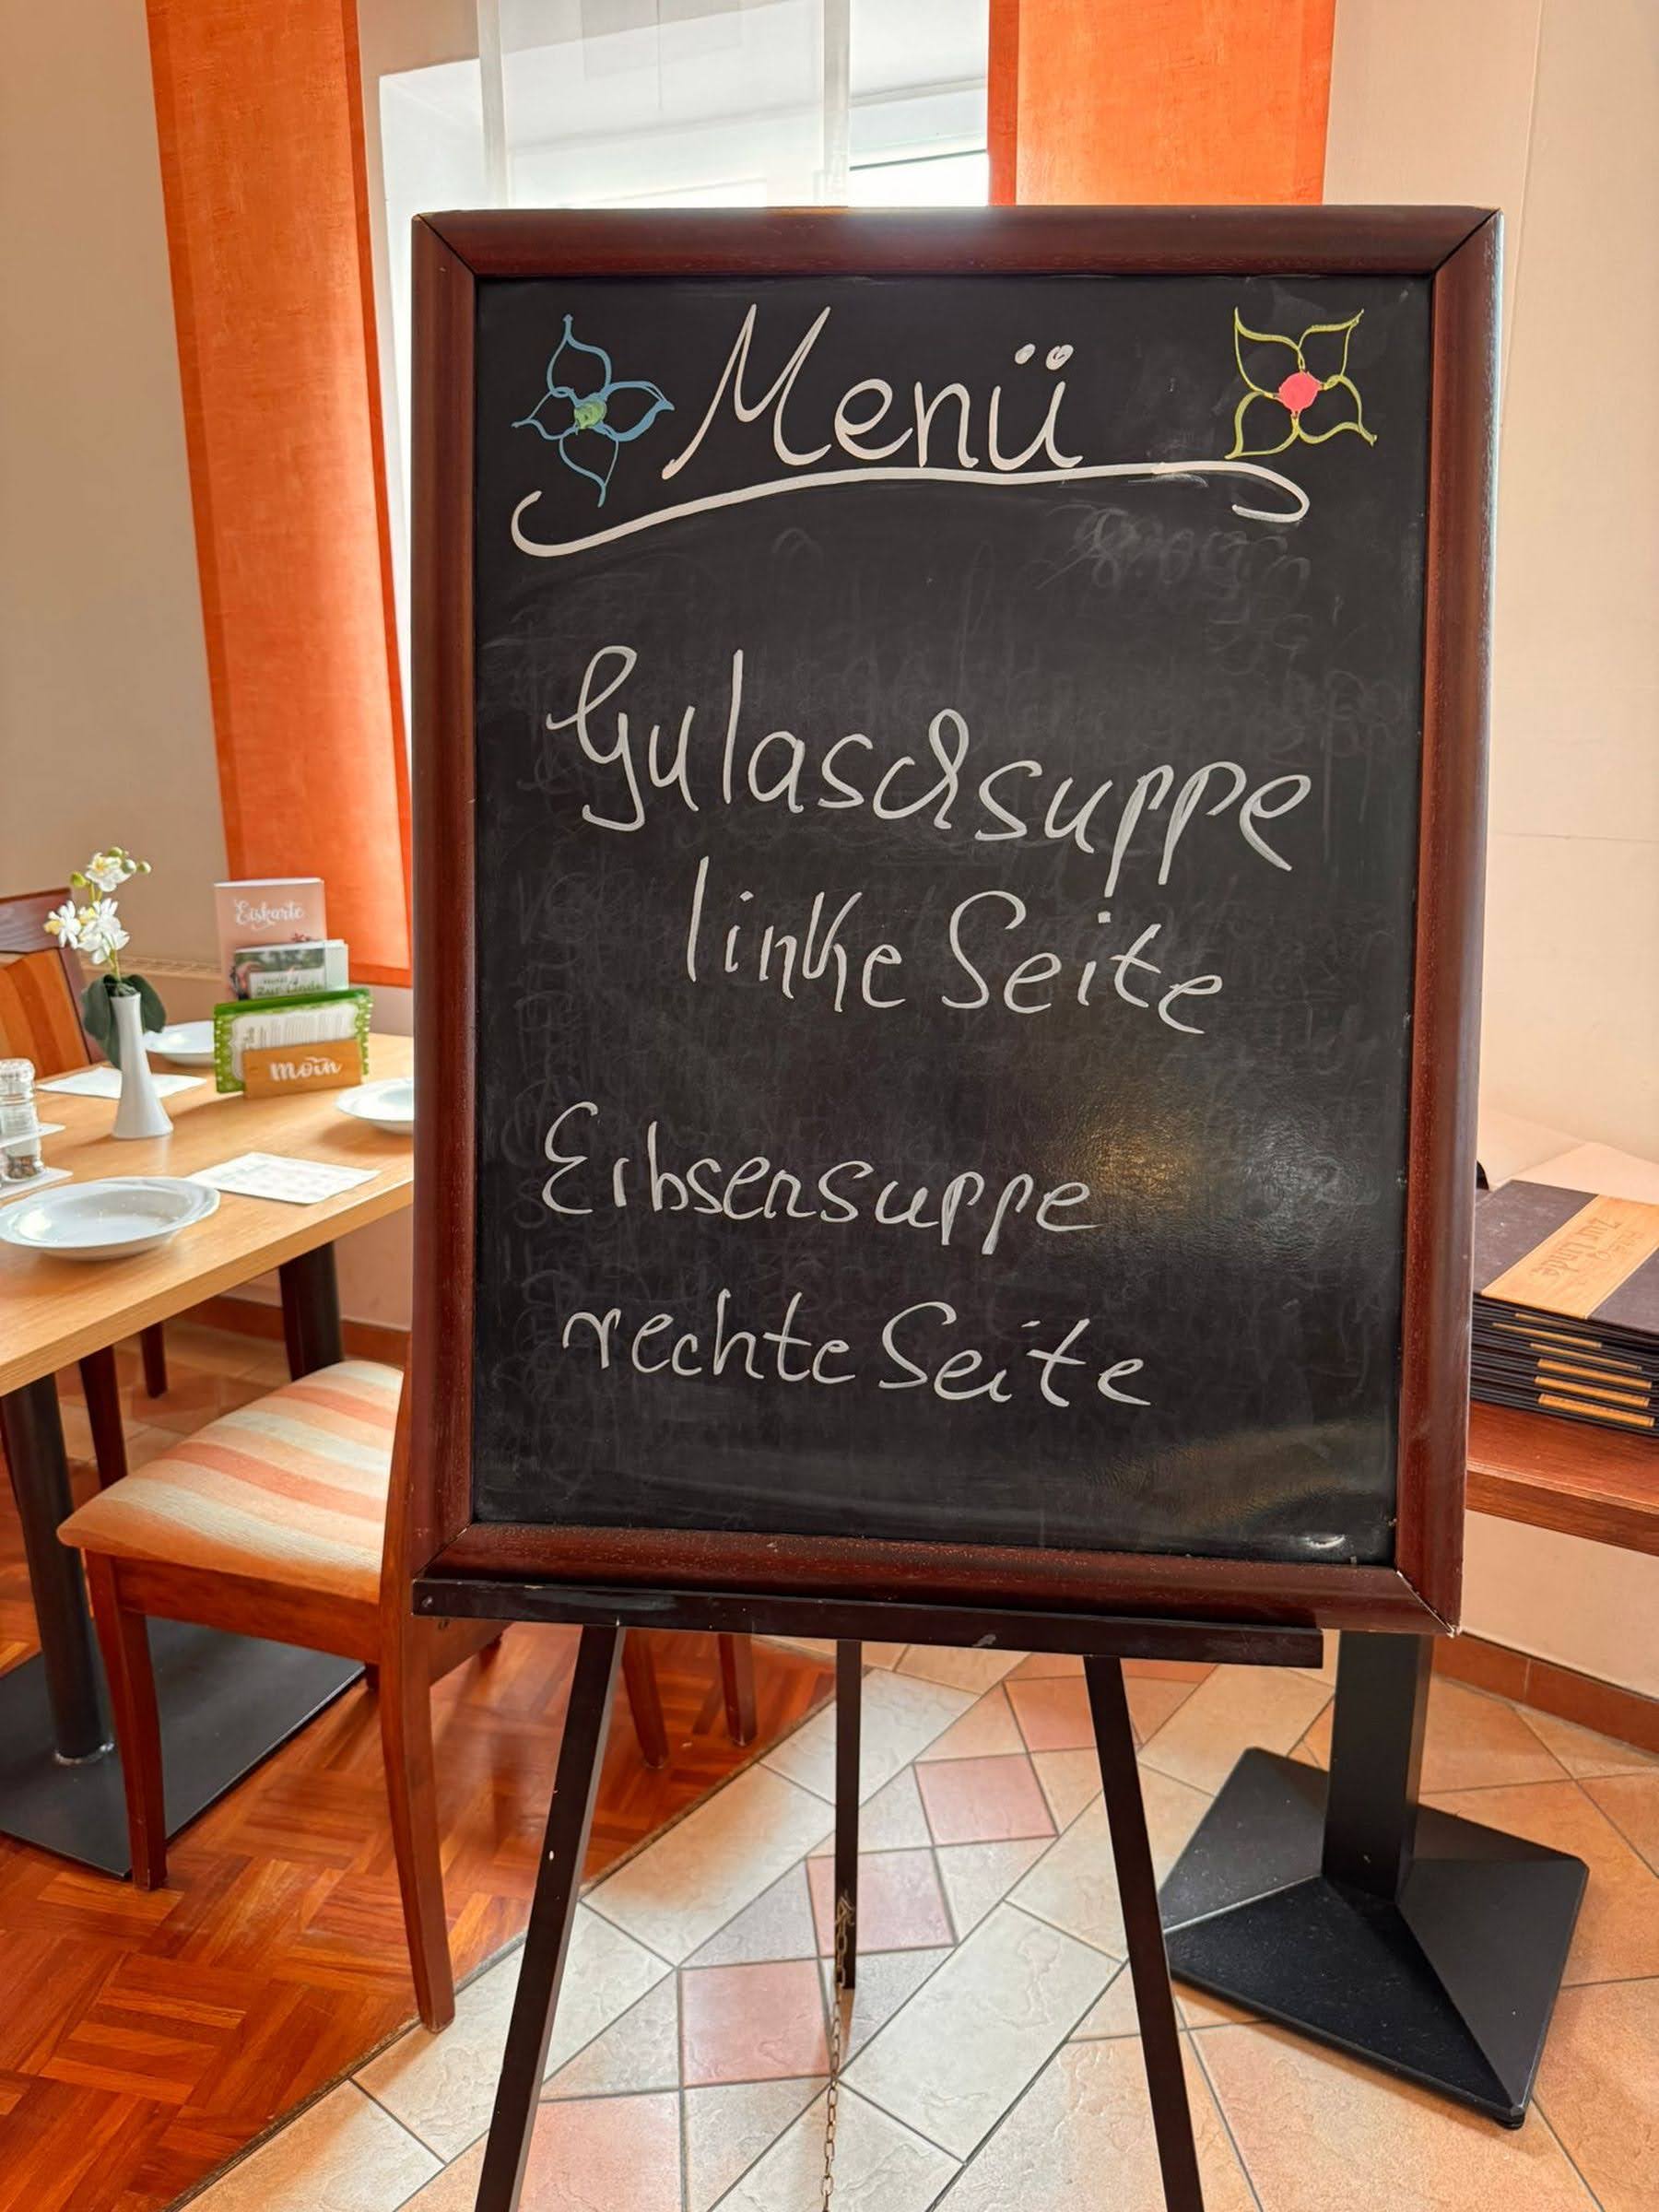 Menü
Gulaschsuppe
linke Seite
Erbsensuppe
rechte Seite
Eiskarte
Zur Linde
moin
Zur Linde